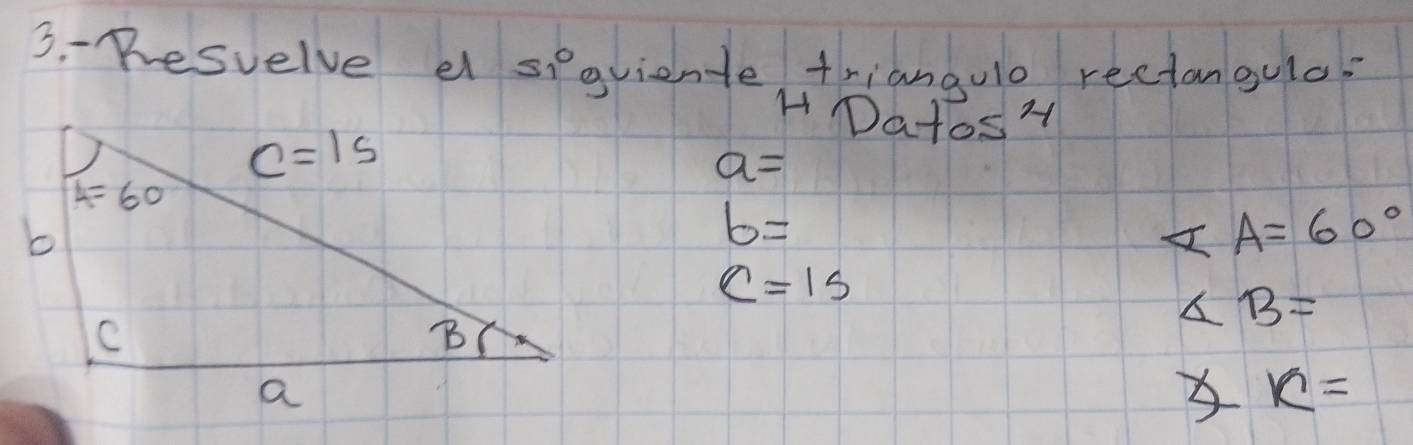 3.- Resuelve el siguiente triangulo rectangulo:
"Datos"
c=15
A=60
b
C
B
a
a=
b=
c=15
∢ A=60°
∢ B=
∢ C=